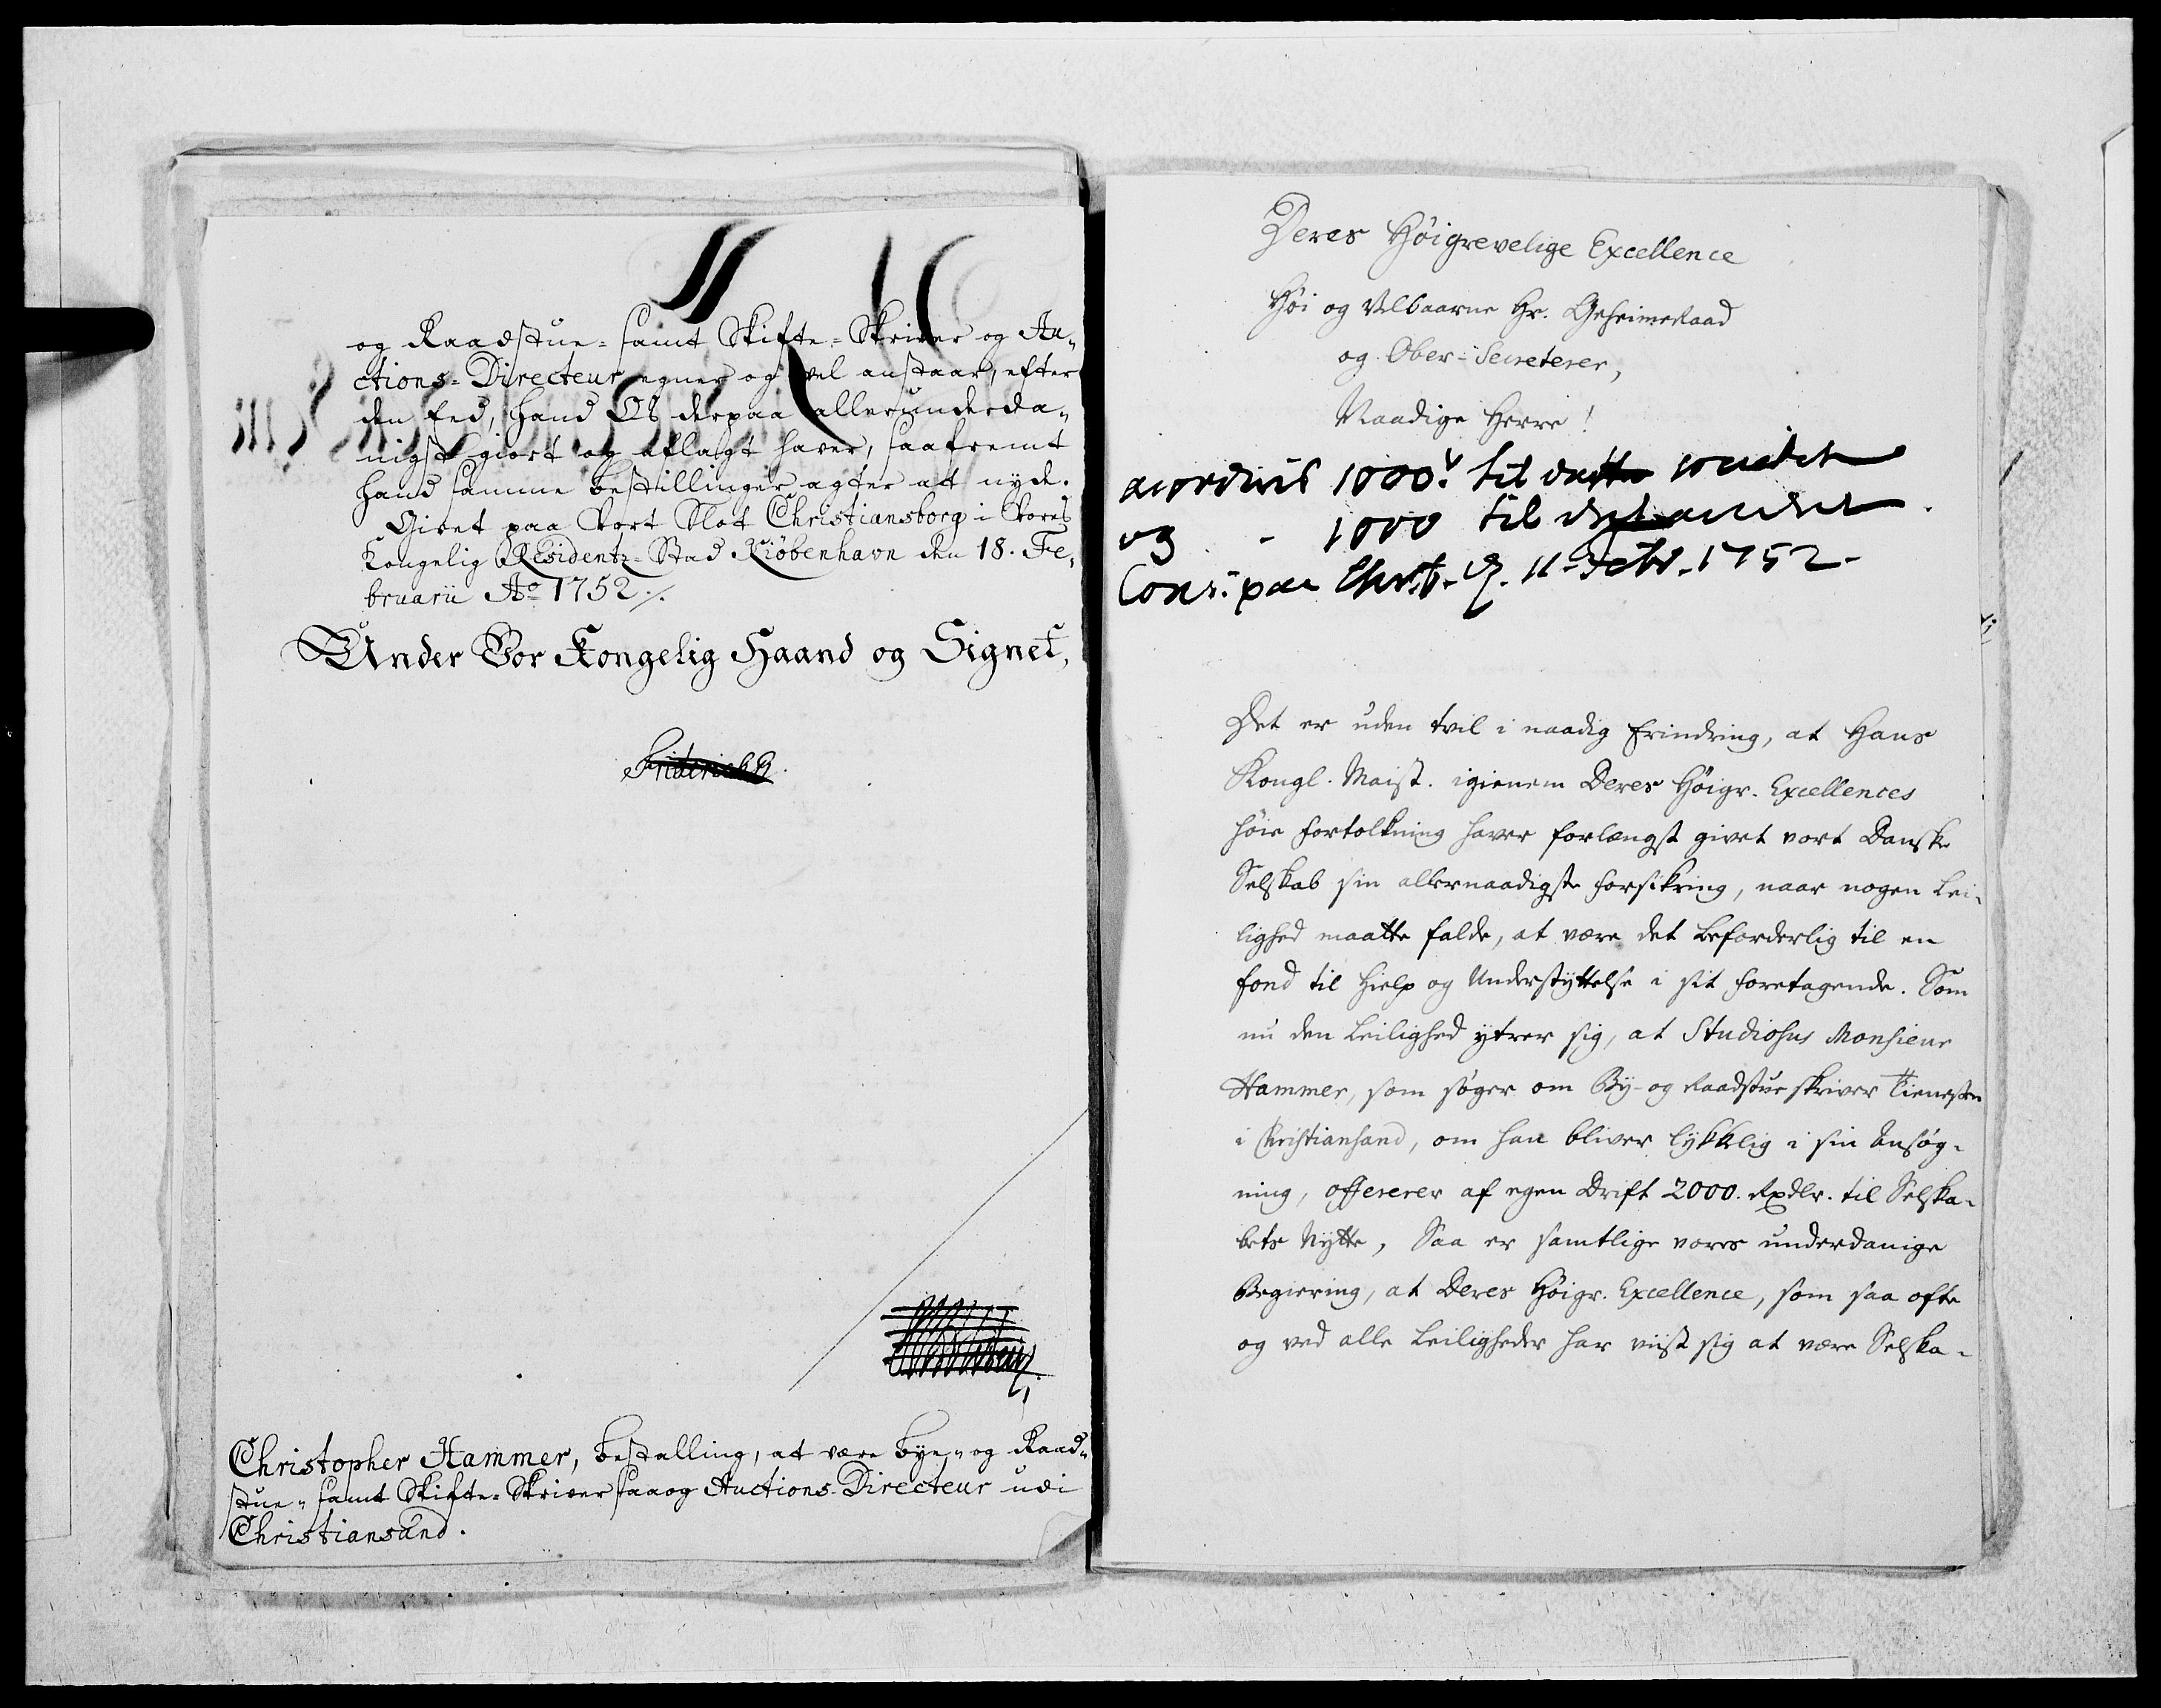 og Raadstue- samt Skifte-Skriver og Au-
ctions-Directeur egner og vel anstaar, efter
den Eed, hand Os derpaa allerunderda-
nigst giort og aflagt haver, saafremt
hand samme bestillinger agter at nyde.
Givet paa Vort Slot Christiansborg i Vores
Kongelig Residentz-Stad Kiöbenhavn den 18. Fe-
bruarii Ao 1752 ./.
Under Vor Kongelig Haand og Signet,
Friderich R.
Christopher Hammer, bestalling, at være bye- og Raad-
stue- samt Skifte-Skriver saaog Auctions-Directeur udi
Christiansand.
Deres Höigrevelige Excellence
Höi og Velbaarne Hr. GeheimeRaad
og Ober-Secreterer,
Naadige Herre!
1000 til dette
og - 1000 til det andet
Febr. 1752
Det er uden tvil i naadig Erindring, at Hans
Kongl. Maist. igienem Deres Höigr. Excellences
höie Fortolkning haver forlængst givet vort Danske
Selskab sin allernaadigste Forsikring, naar nogen Lei-
lighed maatte falde, at være det beforderlig til en
Fond til Hielp og Understyttelse i sit Foretagende. Som
nu den Leilighed ytrer sig, at Studiosus Monsieur
Hammer, som söger om By- og Raadstueskriver Tienesten
i Christiansand, om han bliver lykkelig i sin Ansög-
ning, offererer af egen Drift 2000. Rxdlr. til Selska-
bets Nytte, Saa er samtlige vores underdanige
Begiering, at Deres Höigr. Excellence, som saa ofte
og ved alle Leiligheder har viist sig at være Selska-